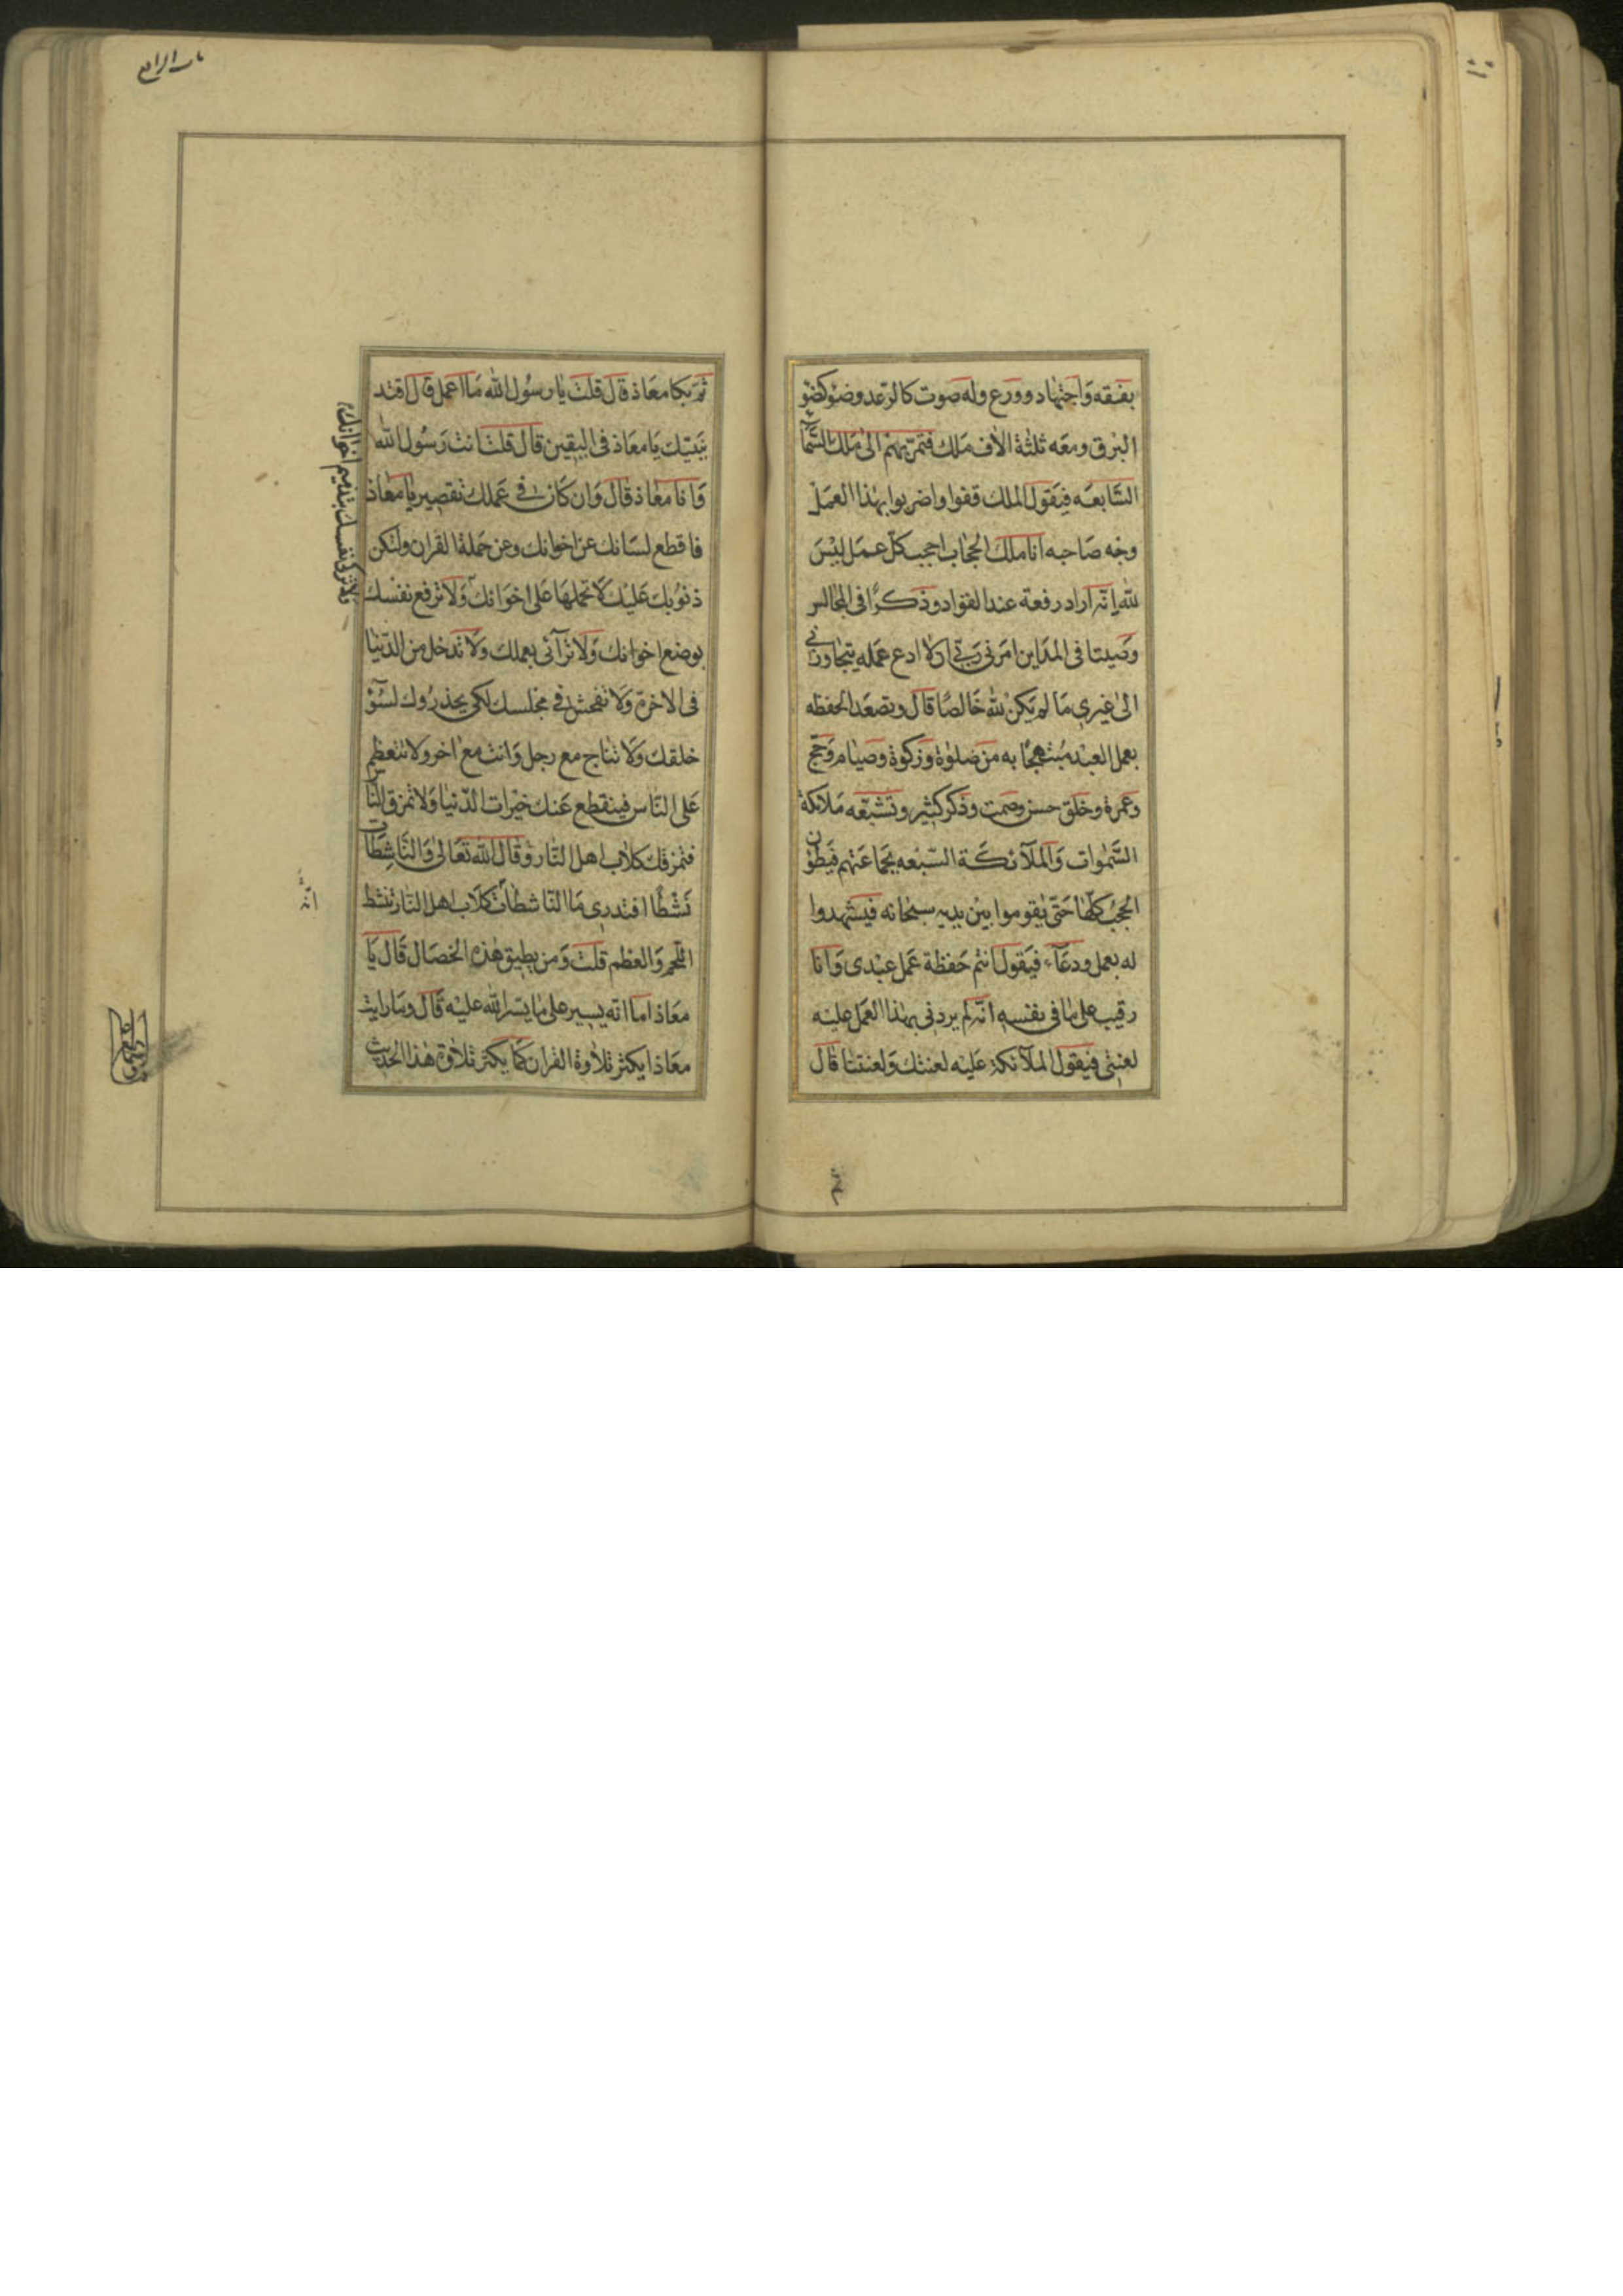 بفقه وَاجتهاد وورع وله صوت كالرّعد وضوْ كضوْ
البرق ومعَه ثلثة الاف مَلك فتمرّ بهم الى مَلك السّماء
السّابعَه فيَقول الملك قفوا واضربوا بهٰذا العمَل
وجْه صَاحبه انا ملك الحجاب احجب كلّ عمَل ليْسَ
للّه اِنّه اراد رفعة عند القواد وذكرًا فى المجالس
وَصيتا فى المدَاين امَرنى ربّى ان لا ادع عمَله يتجاوزنى
الىٰ غيرى مَا لم يَكن للّه خَالصًا قالَ وتصعَد الحفظه
بعمل العبْد مُبتهجًا به من صَلوة وَزكوة وصيَام وَحجّ
وعمرة وخلق حسن وصمت وذكر كثير وتشيّعَه مَلائكة
السَّمٰوات وَالملآئكَة السّبْعه بجمَاعتهم فيَطؤن
الحجُب كلّهَا حَتّى يَقوموا بيْن يديه سبحَانه فيشهدوا
له بعمل ودعَآء فيَقول انتم حَفظة عَمل عبْدى وَانا
رقيب على مَا فى نفسه انّه لم يردنى بهٰذا العمَل عليْه
لعنتى فيَقول الملآئكة عَليْه لعنتك وَلعنتنا قالَ
ثمّ بكا معَاذ قالَ قلت يَا رسُول اللّه مَا اعمل قالَ اقتد
بنبيّك يَا معَاذ فى اليقين قالَ قلت انت رَسُول اللّه
وَانا معَاذ قالَ وَان كَان فى عَملك تقصير يَا معَاذ
فاقطع لسَانك عن اخوانك وعن حَملة القران ولتكن
ذنوبك عَليْك لَا تحملهَا عَلى اخوَانك وَلا ترفع نفسْك
بوضع اخوانك وَلا ترآئى بعملك وَلا تدخل من الدّنيَا
فى الاخرة وَلا تفحش فى مجلسك لكى يحذرُوك لسُوْ
خلقك وَلا تناج مع رجل وَانت معَ اخر ولا تتعظّم
عَلى النّاس فينقطع عَنك خيْرات الدّنيَا وَلا تمزق النّاس
فتمزقك كلاب اهل النّار وقالَ اللّه تعَالى وَالنّاشِطَات
نَشْطًا افتدرى مَا النّاشطات كلاب اهل النّار تنشط
اللّحم وَالعظم قلت وَمن يطيق هٰذه الخصَال قَال يَا
معَاذ اما انه يسير على مَا يسّر اللّه عليْه قَالَ ومَا رايت
معَاذا يكثر تلاوة القران كمَا يكثر تلاوة هٰذا الحديث
ولا تزكى نفسك بتذميم اخوانك
ثمّ
انّه